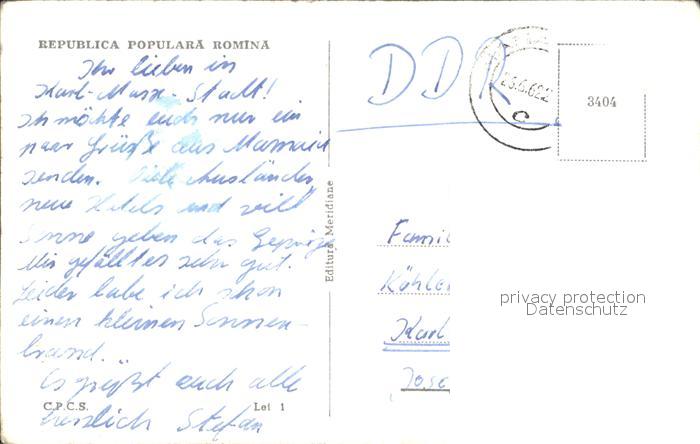 REPUBLICA POPULARĂ ROMÎNĂ
Ihr lieben in
Karl-Marx-Stadt!
Ich möchte euch nur ein
paar Grüße aus Mamaia
senden. Viele Ausländer,
neue Hotels und viel
Sonne geben das Gepräge
Mir gefällt es sehr gut.
Leider habe ich schon
einen kleinen Sonnen-
brand.
Es grüßt euch alle
herzlich Stefan
C.P.C.S. Lei 1
Editura Meridiane
DDR
25.6.62
c
3404
Famil
Köhler
Karl
Jose
privacy protection
Datenschutz